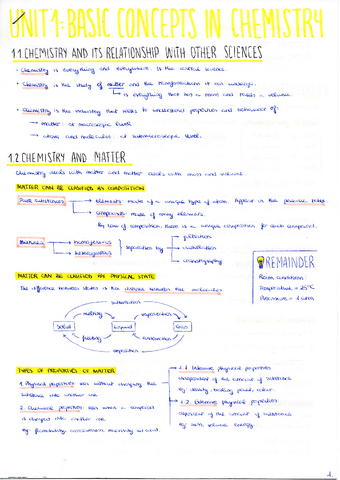 UNIT 1: BASIC CONCEPTS IN CHEMISTRY
1.1 CHEMISTRY AND ITS RELATIONSHIP WITH OTHER SCIENCES
· Chemistry is everything and everywhere. Is the central science.
· Chemistry is the study of matter and the transformations it can undergo.
is everything that has a mass and takes a volume.
· Chemistry is the industry that seeks to understand properties and behaviour of:
→ matter: at macroscopic level
→ atoms and molecules: at submicroscopic level.
1.2 CHEMISTRY AND MATTER
Chemistry deals with matter and matter deals with mass and volume.
MATTER CAN BE CLASSIFIED AS COMPOSITION
Pure substances → elements: made of a unique type of atom. Appear in the periodic table.
→ compounds: made of many elements.
By law of composition there is a unique composition for each compound.
Mixtures → homogeneous
→ heterogeneous
separation by
→ filtration
→ distillation
→ chromatography
REMAINDER
Room conditions
Temperature = 25°C
Pressure = 1 atm
MATTER CAN BE CLASSIFIED AS PHYSICAL STATE
The difference between states is the distance between the molecules
sublimation
melting
vaporization
Solid
Liquid
Gas
freezing
condensation
deposition
TYPES OF PROPERTIES OF MATTER
1. Physical properties: seen without changing the
substance into another one
2. Chemical properties: seen when a compound
is changed into another one
eg: flammability, corrosiveness, reactivity w/ acid.
1.1. Intensive physical properties:
independent of the amount of substance
eg: density, boiling point, colour
1.2. Extensive physical properties:
dependent of the amount of substance
eg: mass, volume, energy.
1.